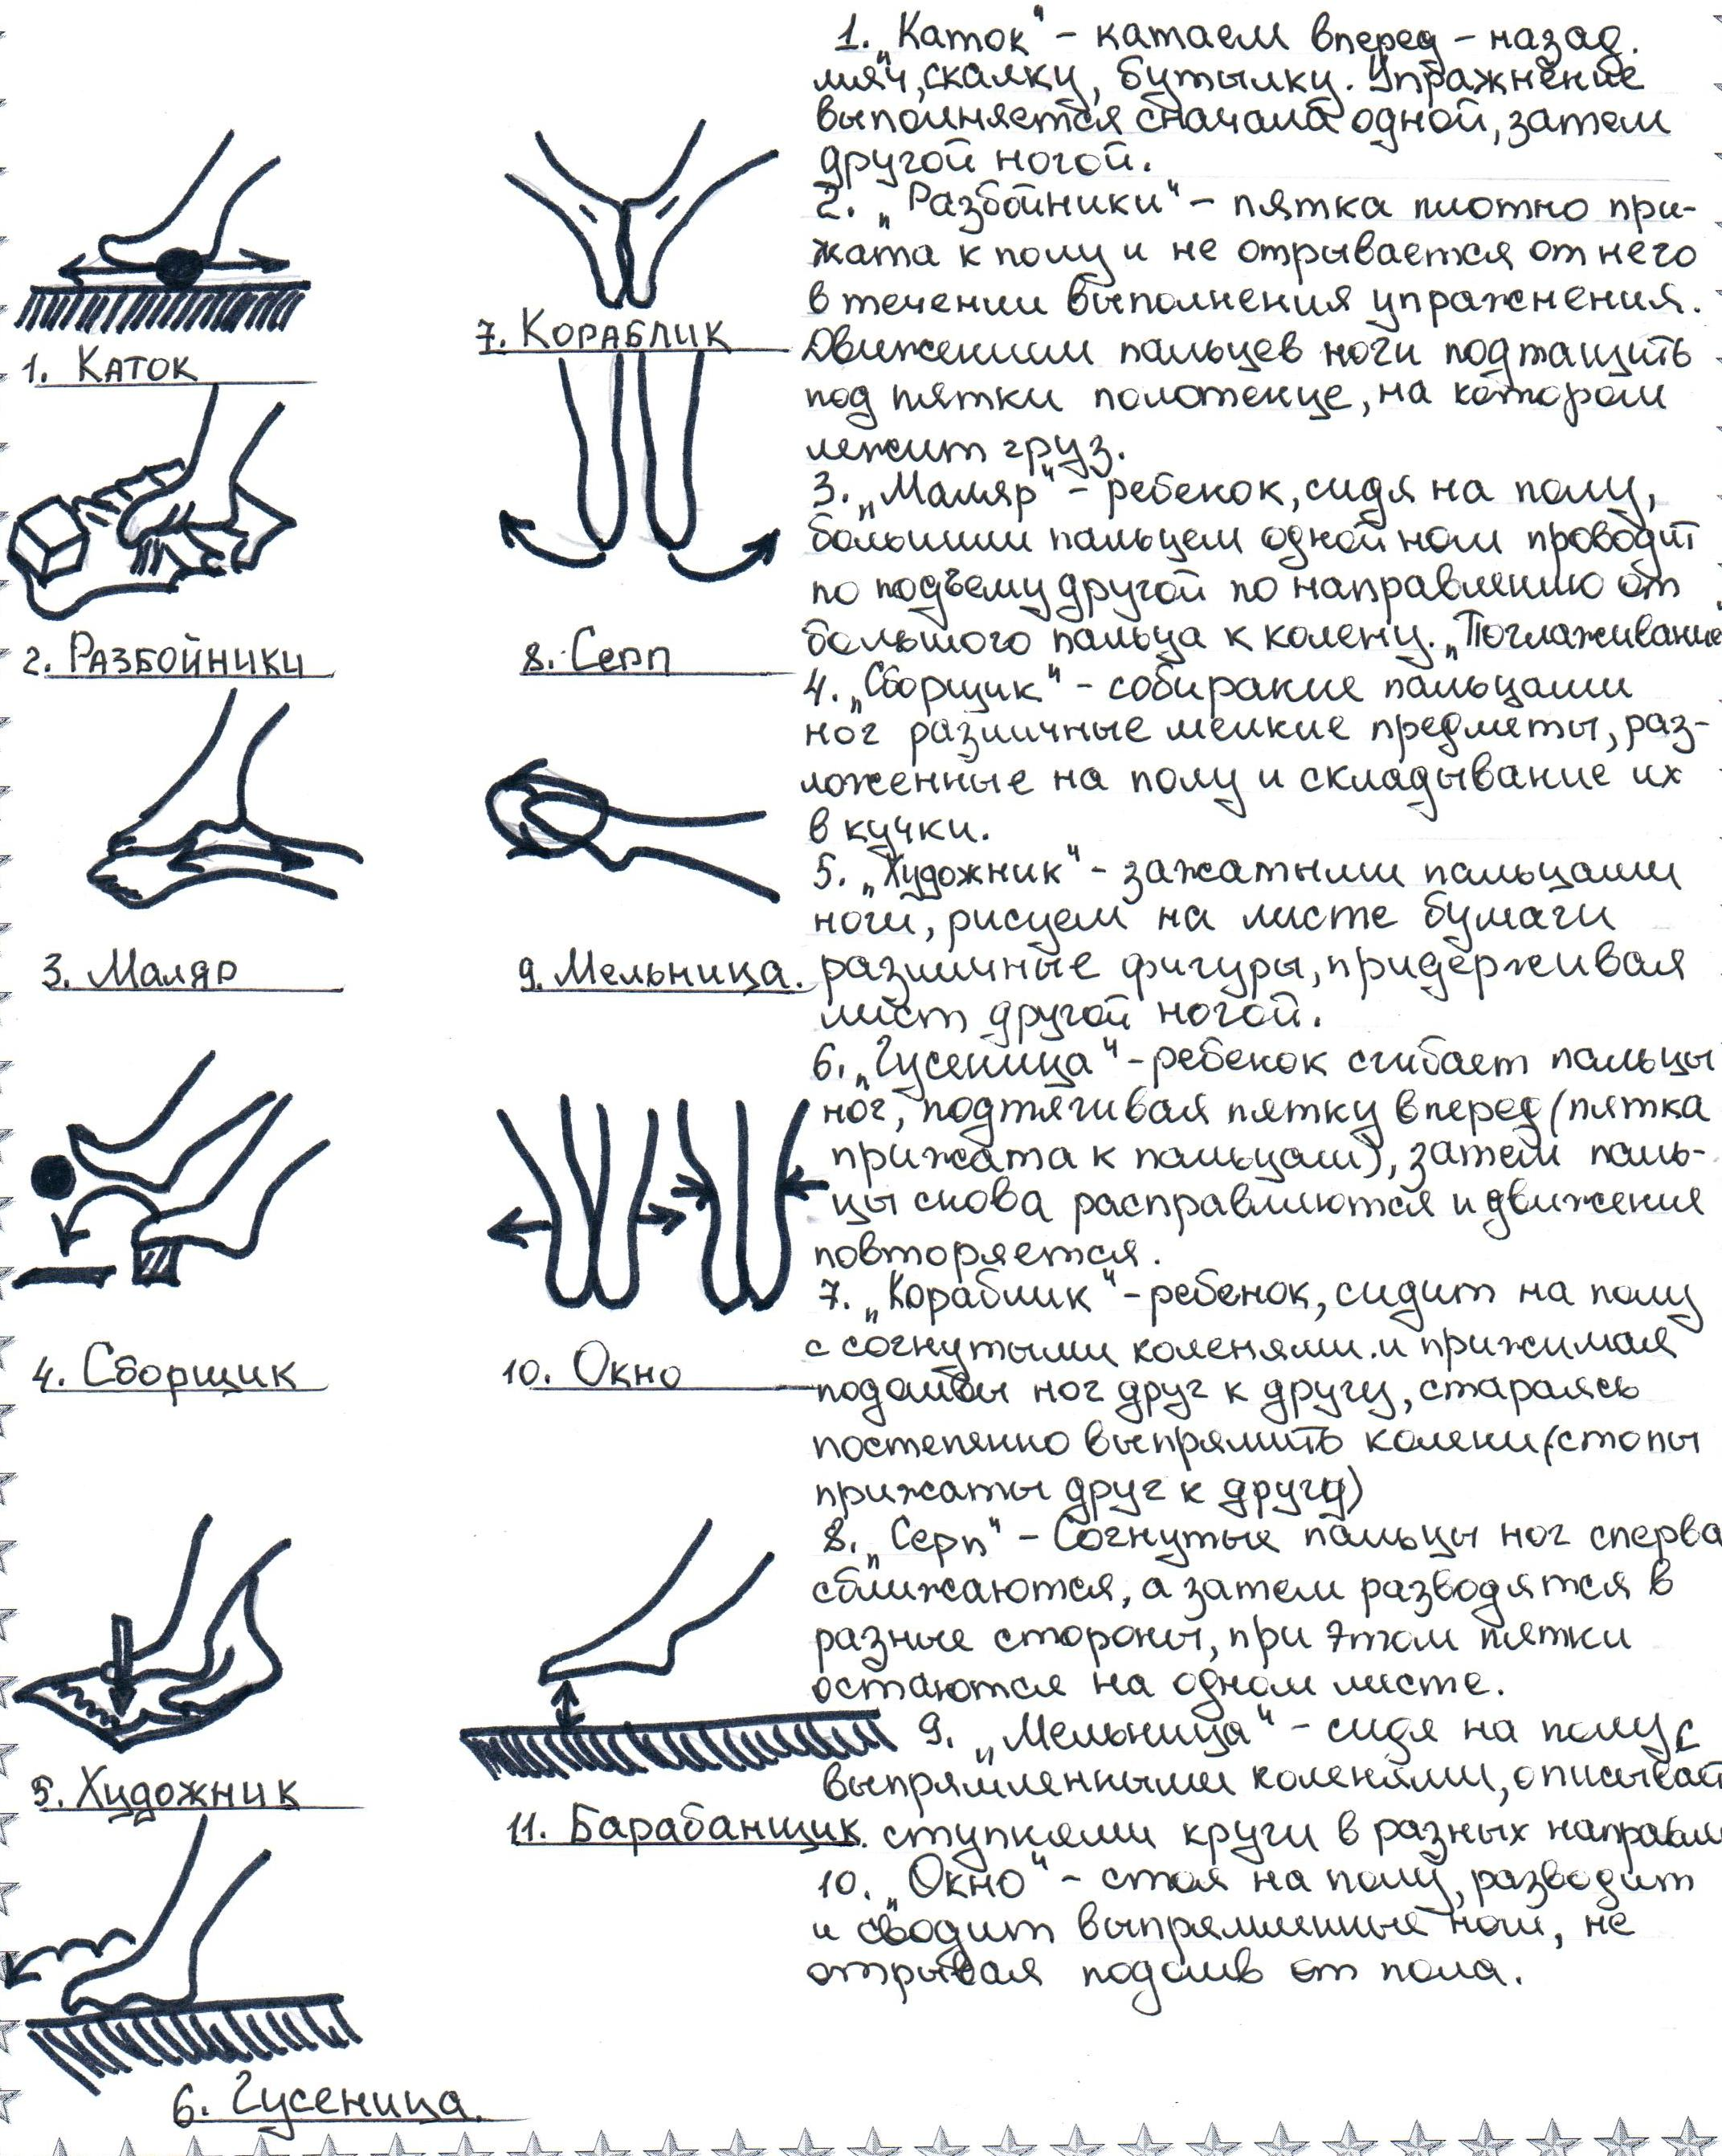 1. Каток
2. Разбойники
3. Маляр
4. Сборщик
5. Художник
6. Гусеница.
7. Кораблик
8. Серп
9. Мельница.
10. Окно
11. Барабанщик.
1. „Каток" - катаем вперед - назад.
мяч, скалку, бутылку. Упражнение
выполняется сначала одной, затем
другой ногой.
2. „Разбойники" - пятка плотно при-
жата к полу и не отрывается от него
в течении выполнения упражнения.
Движениями пальцев ноги подтащить
под пятки полотенце, на котором
лежит груз.
3. „Маляр" - ребенок, сидя на полу,
большим пальцем одной ноги проводит
по подъему другой по направлению от
большого пальца к колену. „Поглаживание
4. „Сборщик" - собирание пальцами
ног различные мелкие предметы, раз-
ложенные на полу и складывание их
в кучки.
5. „Художник" - зажатыми пальцами
ноги, рисуем на листе бумаги
различные фигуры, придерживая
лист другой ногой.
6. „Гусеница" - ребенок сгибает пальцы
ног, подтягивая пятку вперед (пятка
прижата к пальцам), затем паль-
цы снова расправляются и движения
повторяется.
7. „Кораблик" - ребенок, сидит на полу
с согнутыми коленями и прижимая
подошвы ног друг к другу, стараясь
постепенно выпрямить колени (стопы
прижаты друг к другу)
8. „Серп" - Согнутые пальцы ног сперва
сближаются, а затем разводятся в
разные стороны, при этом пятки
остаются на одном листе.
9. „Мельница" - сидя на полу с
выпрямленными коленями, описывает
ступнями круги в разных направл
10. „Окно" - стоя на полу, разводит
и сводит выпрямленные ноги, не
отрывая подошв от пола.